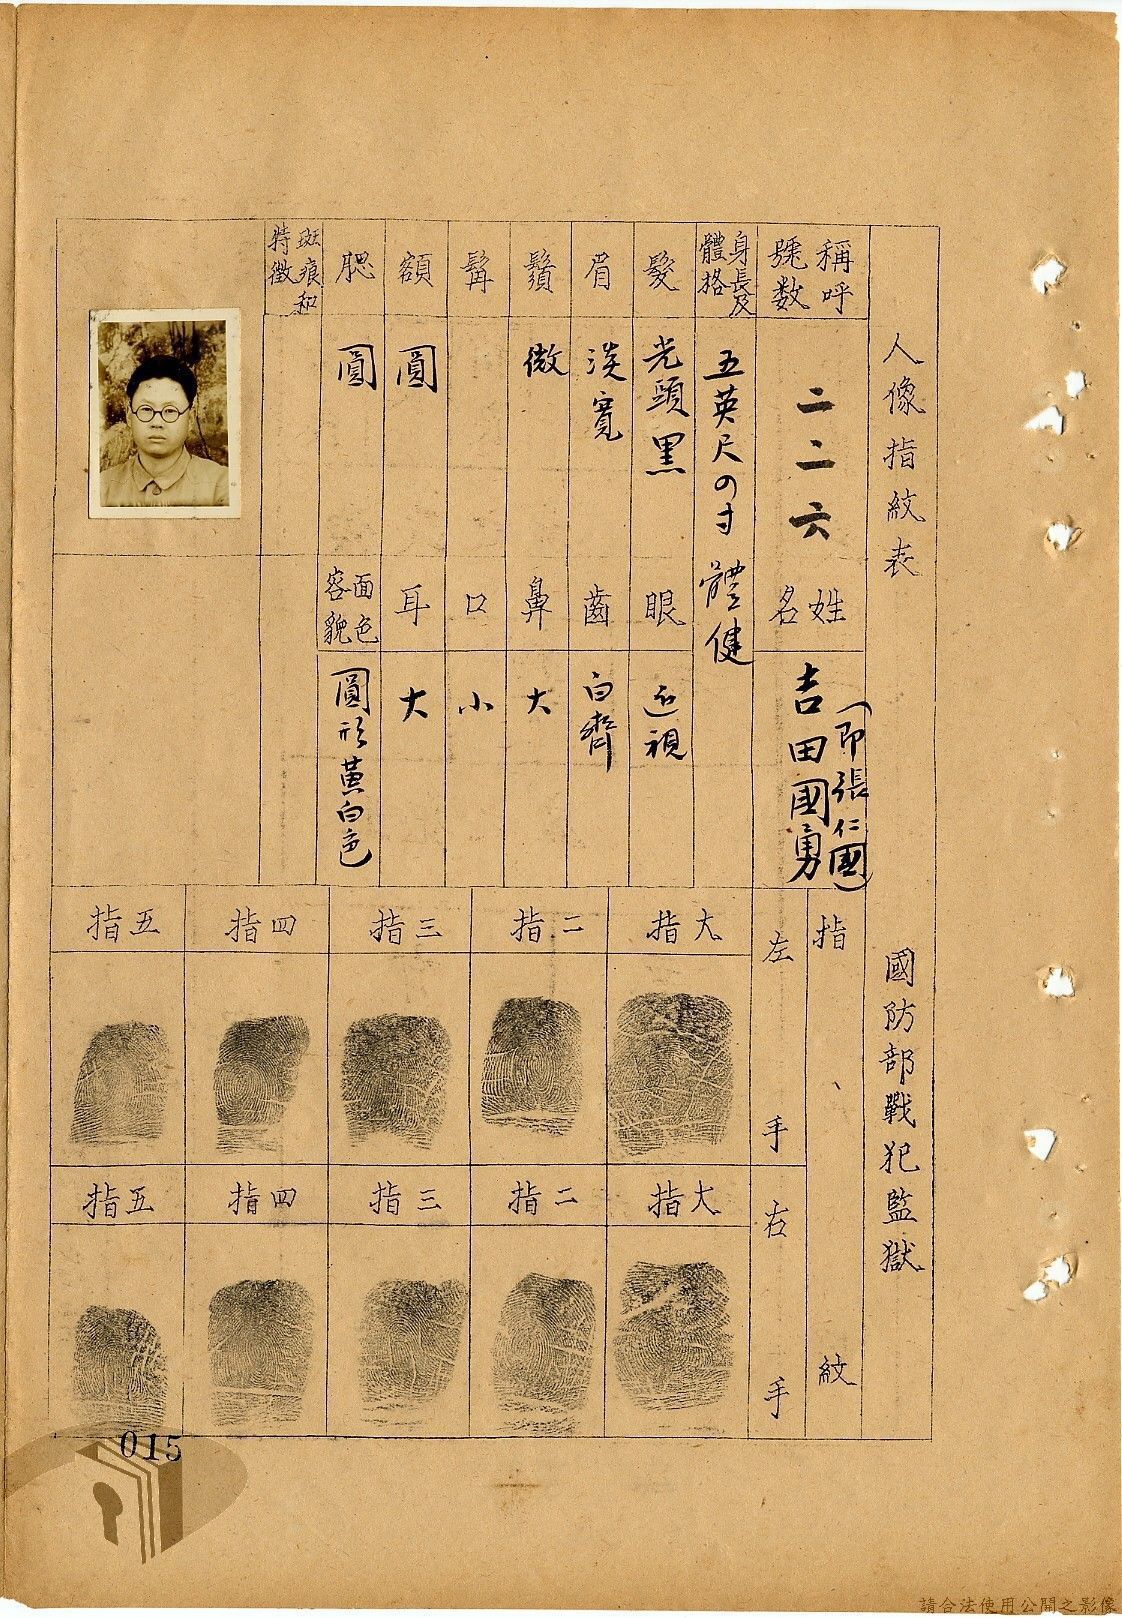 人像指紋表
國防部戰犯監獄
稱呼號数
二二六
姓名
吉田國勇
(即張仁國)
身長及體格
五英尺の寸 體健
髮
光頭黑
眼
近視
眉
淡寬
齒
白齊
鬚
微
鼻
大
髯
口
小
額
圓
耳
大
腮
圓
面色容貌
圓形黃白色
斑痕和特徵
指紋
左手
大指
二指
三指
四指
五指
右手
大指
二指
三指
四指
五指
015
請合法使用公開之影像